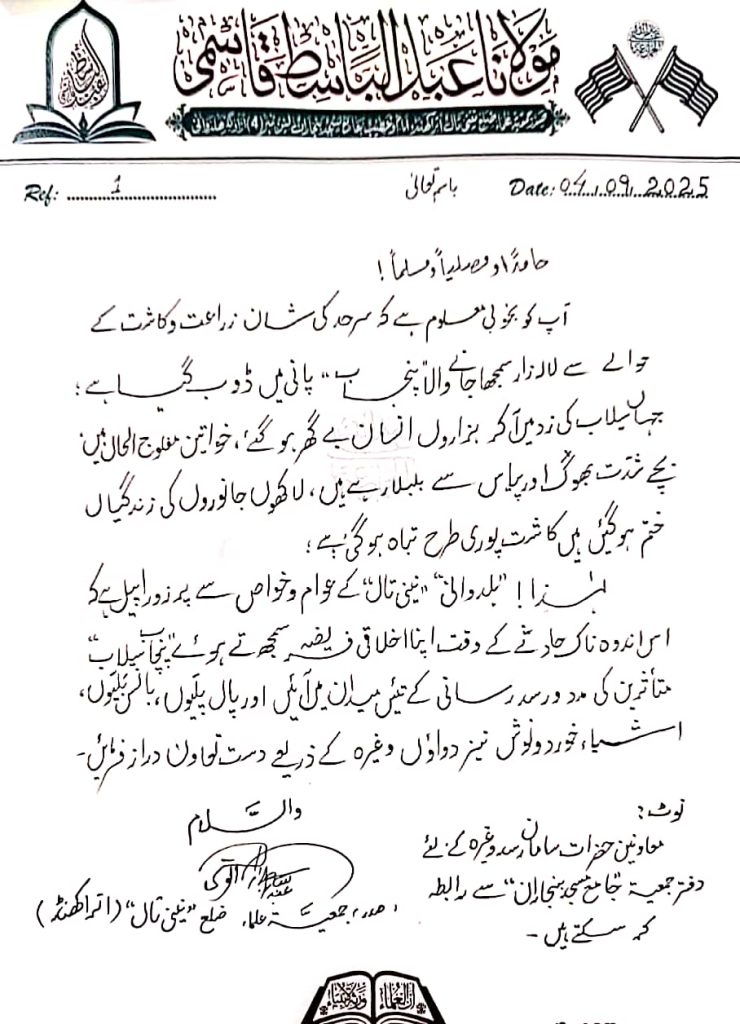 مولانا عبدالباسط قاسمی
صدر جمعیۃ علماء ضلع نینی تال اتراکھنڈ امام وخطیب جامع مسجد بنجاران لائن نمبر (4) آزاد نگر ہلدوانی
Ref: 1
باسم تعالیٰ
Date: 04.09.2025
حامداً ومصلیاً ومسلماً!
آپ کو بخوبی معلوم ہے کہ سرحد کی شان زراعت وکاشت کے
حوالے سے لالہ زار سمجھا جانے والا "پنجاب" پانی میں ڈوب گیا ہے؛
جہاں سیلاب کی زد میں آکر ہزاروں انسان بے گھر ہوگئے، خواتین مفلوج الحال ہیں
بچے شدت بھوک اور پیاس سے بلبلا رہے ہیں، لاکھوں جانوروں کی زندگیاں
ختم ہوگئیں ہیں کاشت پوری طرح تباہ ہوگئی ہے؛
لہٰذا! "ہلدوانی" "نینی تال" کے عوام وخواص سے پر زور اپیل ہے کہ
اس اندوہ ناک حادثے کے وقت اپنا اخلاقی فریضہ سمجھتے ہوئے "پنجاب سیلاب"
متأثرین کی مدد ورسد رسانی کے تئیں میدان میں آئیں اور پال پلیوں، بانس بلیوں،
اشیاء خورد ونوش نیز دواؤں وغیرہ کے ذریعے دست تعاون دراز فرمائیں۔
والسَّلام
صدر جمعیۃ علماء ضلع "نینی تال" (اتراکھنڈ)
نوٹ:
معاونین حضرات سامان رسد وغیرہ کے لئے
دفتر جمعیۃ "جامع مسجد بنجاران" سے رابطہ
کر سکتے ہیں۔
إن العلماء ورثة الأنبياء